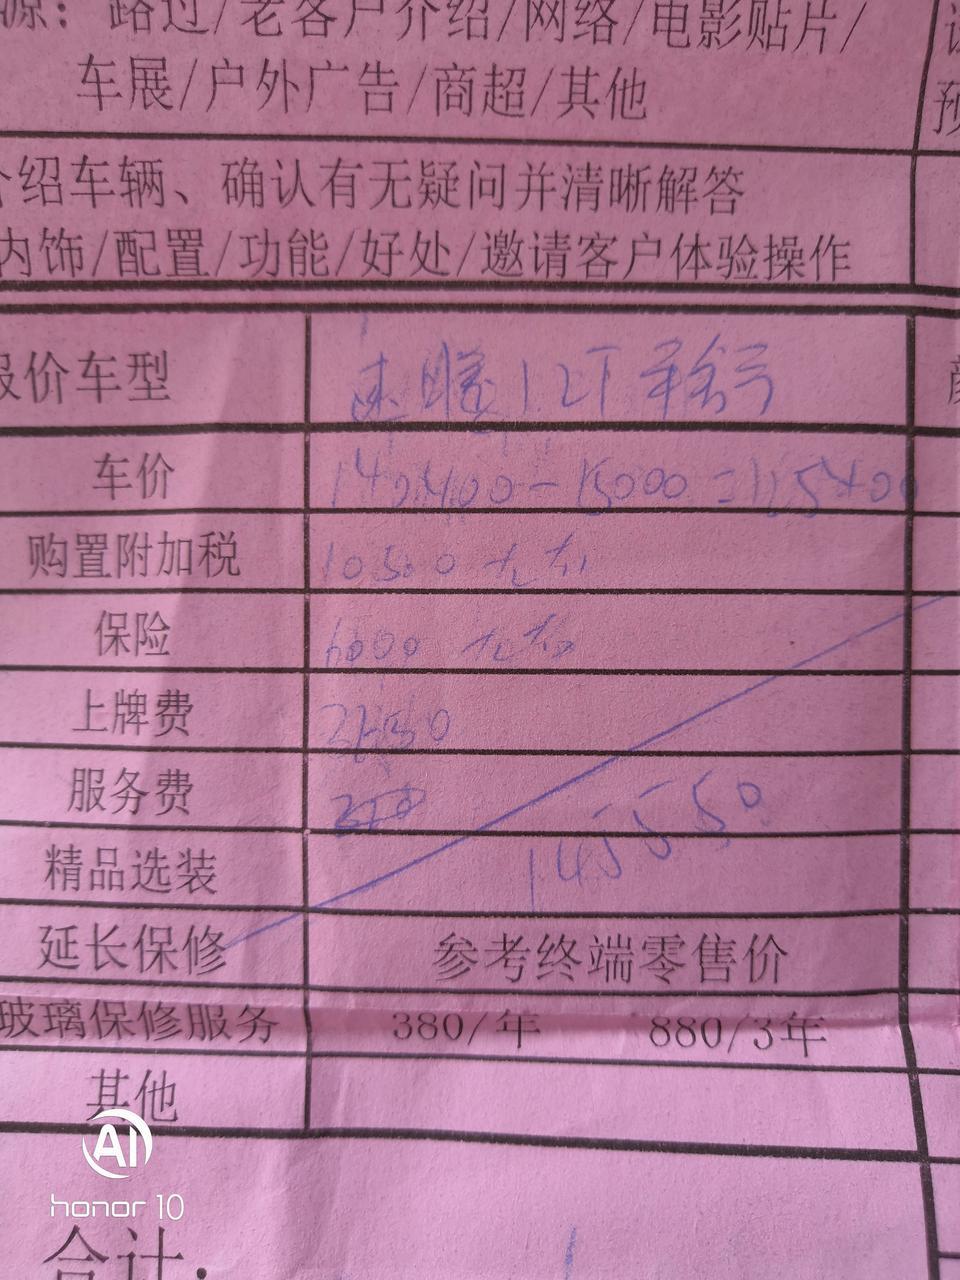 源：路过/老客户介绍/网络/电影贴片/
车展/户外广告/商超/其他
介绍车辆、确认有无疑问并清晰解答
内饰/配置/功能/好处/邀请客户体验操作
报价车型 速腾 1.2T 手舒
车价 140400-15000=125400
购置附加税 10500左右
保险 6000左右
上牌费
服务费
145550
精品选装
延长保修 参考终端零售价
玻璃保修服务 380/年 880/3年
其他
AI
honor 10
合计: